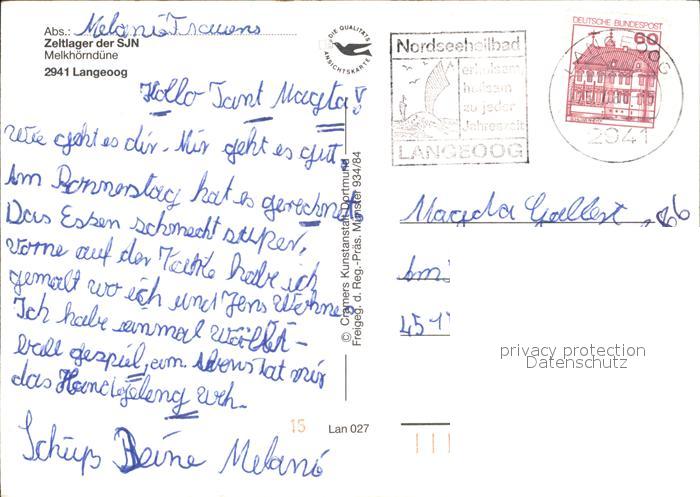 Abs.: Melanie Trauens
Zeltlager der SJN
Melkhörndüne
2941 Langeoog
DIE QUALITÄTS
ANSICHTSKARTE
Nordseeheilbad
erholsam
heilsam
zu jeder
Jahreszeit
LANGEOOG
DEUTSCHE BUNDESPOST
60
LANGEOOG
2941
Hallo Tant Magta!
Wie geht es dir. Mir geht es gut.
Am Donnerstag hat es gerechnet.
Das Essen schmeckt super,
vorne auf der Kakte habe ich
gemalt wo ich und Jens Wohnen
Ich habe einmal Wolleÿ-
ball gespiel, am abens tat mir
das Handgeleng weh.
Schüß Deine Melani
© Cramers Kunstanstalt Dortmund
Freigeg. d. Reg.-Präs. Münster 934/84
Magda Gallert
Am
45
privacy protection
Datenschutz
15
Lan 027